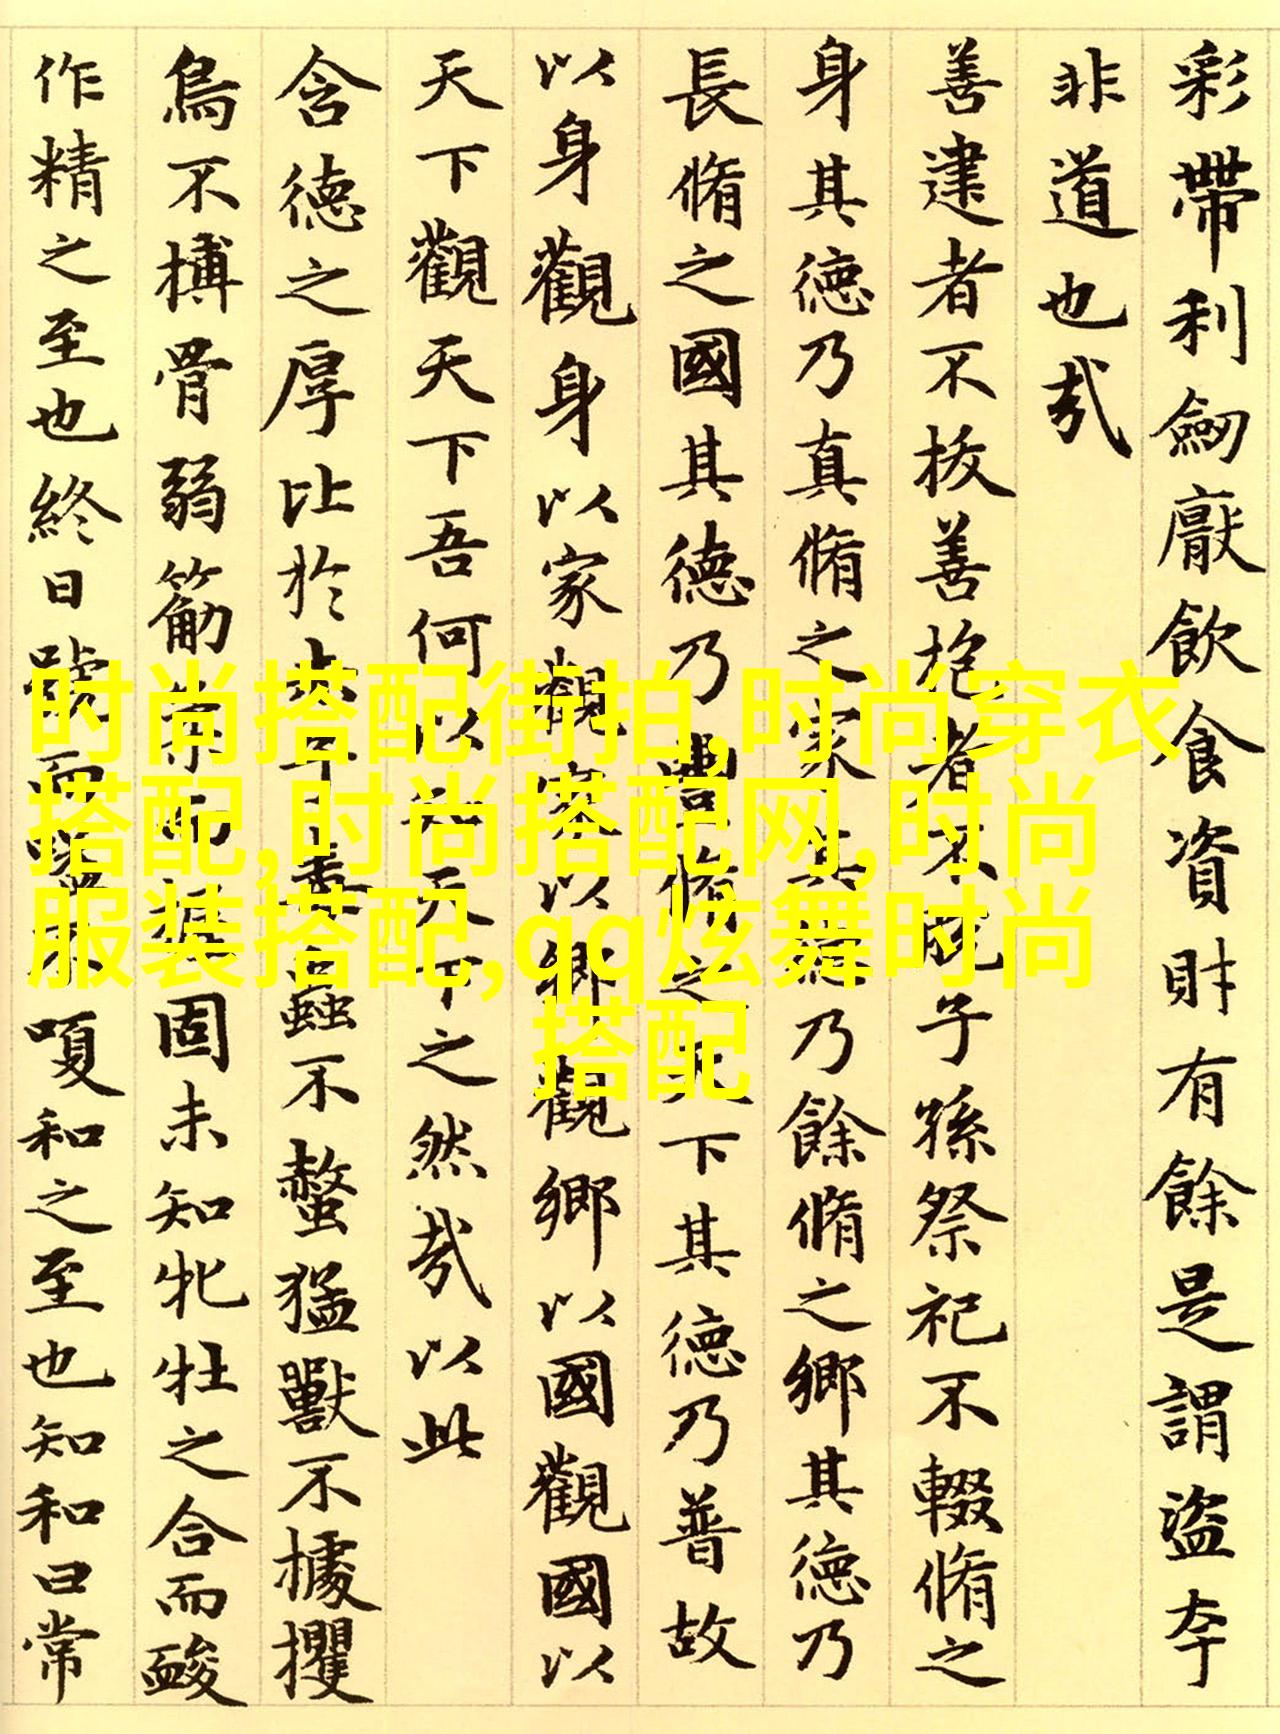 彩帶利劒厭飲食資財有餘是謂盜夸
非道也哉
善建者不拔善抱者不脫子孫祭祀不輟脩之
身其德乃真脩之家其德乃餘脩之鄉其德乃
長脩之國其德乃豐脩之天下其德乃普故
以身觀身以家觀家以鄉觀鄉以國觀國以
天下觀天下吾何以知天下之然哉以此
含德之厚比於赤子毒蟲不螫猛獸不據攫
鳥不搏骨弱筋柔而握固未知牝牡之合而䘒
作精之至也終日號而嗌不嗄和之至也知和曰常
时尚搭配街拍,时尚穿衣
搭配,时尚搭配网,时尚
服装搭配,qq炫舞时尚
搭配